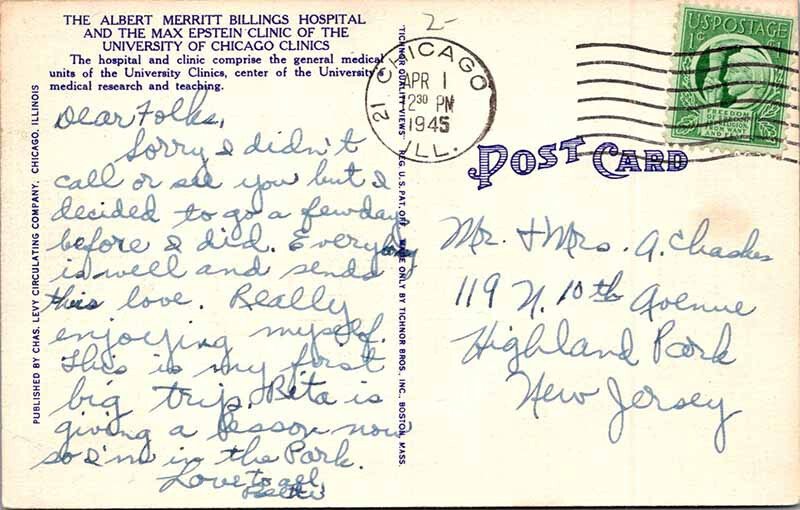 THE ALBERT MERRITT BILLINGS HOSPITAL
AND THE MAX EPSTEIN CLINIC OF THE
UNIVERSITY OF CHICAGO CLINICS
The hospital and clinic comprise the general medical
units of the University Clinics, center of the University
medical research and teaching.
PUBLISHED BY CHAS. LEVY CIRCULATING COMPANY, CHICAGO, ILLINOIS
Dear Folks,
Sorry I didn't
call or see you but I
decided to go a few days
before I did. Everybody
is well and sends
this love. Really
enjoying myself.
This is my first
big trip. Rita is
giving a lesson now
so I'm in the Park.
Love to all,
"TICHNOR QUALITY VIEWS" REG. U.S. PAT. OFF. MADE ONLY BY TICHNOR BROS., INC., BOSTON, MASS.
2-
CHICAGO
21
APR 1
12 30 PM
1945
ILL.
U.S. POSTAGE
1¢
FREEDOM
OF SPEECH AND
RELIGION
FROM WANT
AND FEAR
POST CARD
Mr. + Mrs. A. Chashes
119 N. 10th Avenue
Highland Park
New Jersey